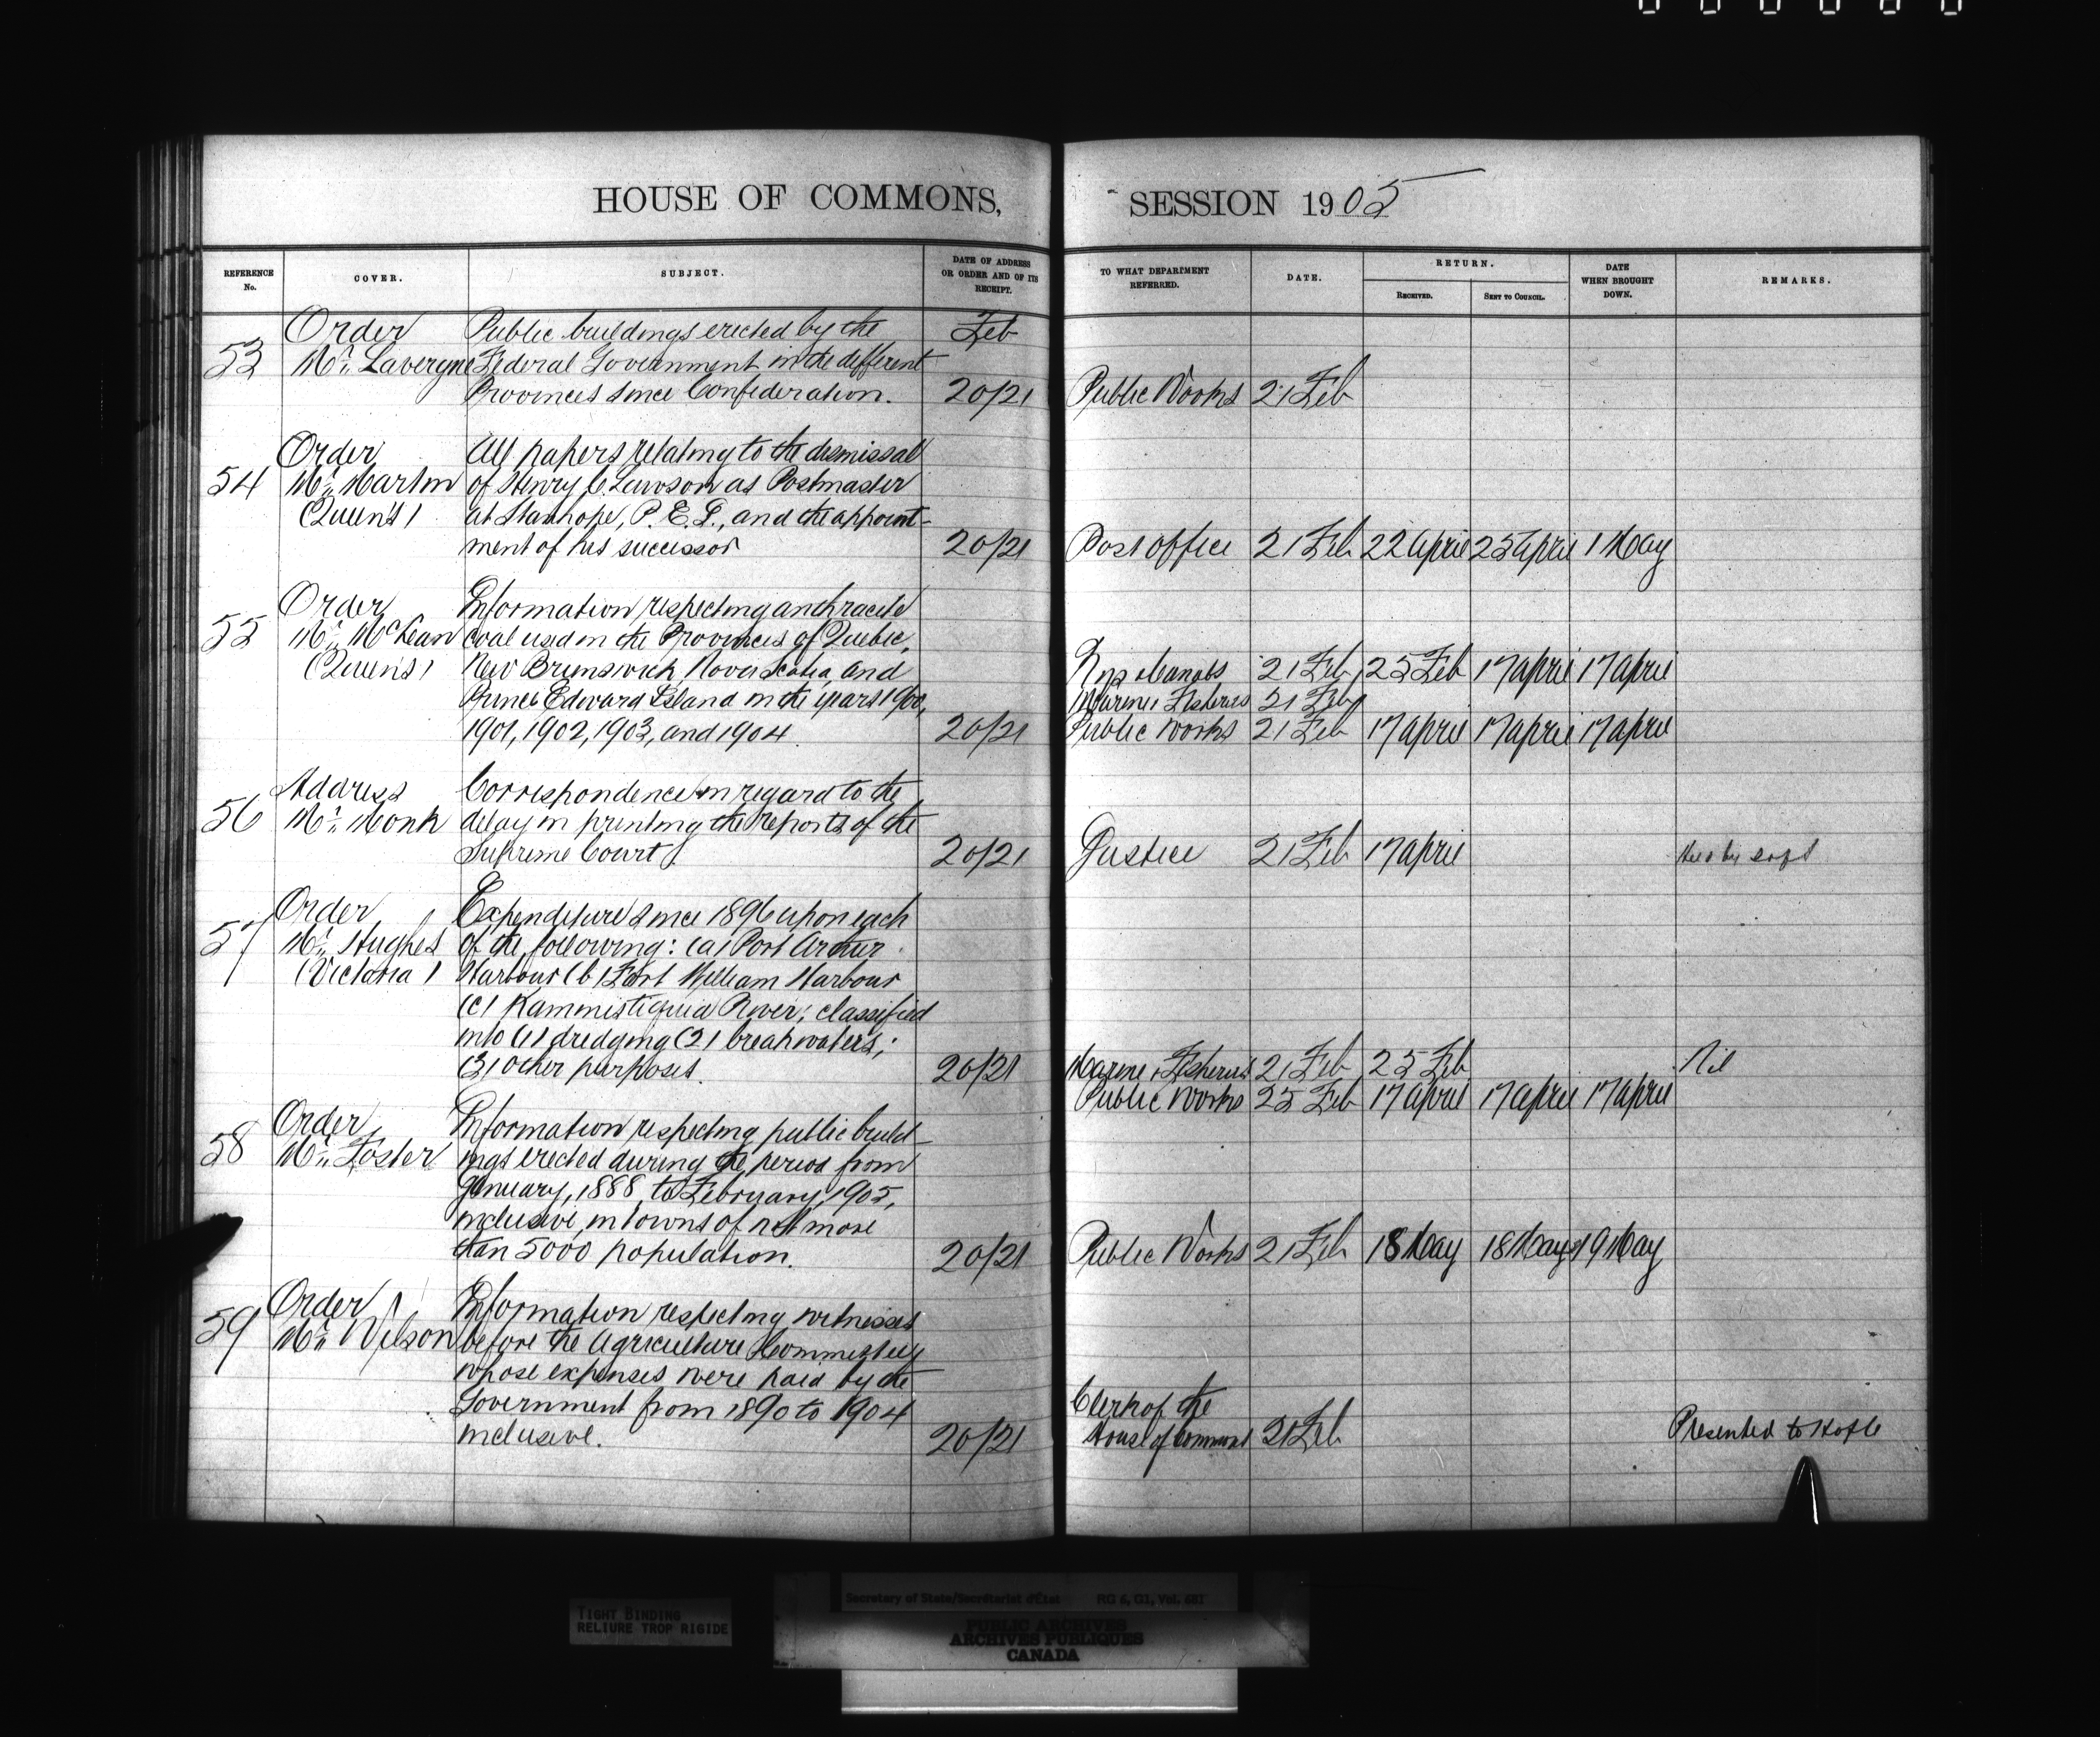 HOUSE OF COMMONS, SESSION 1905
REFERENCE No. COVER. SUBJECT. DATE OF ADDRESS OR ORDER AND OF ITS RECEIPT. TO WHAT DEPARTMENT REFERRED. DATE. RETURN. RECEIVED. SENT TO COUNCIL. DATE WHEN BROUGHT DOWN. REMARKS.
Order Public buildings erected by the Feb
53 Mr. Lavergne Federal Government in the different
Provinces since Confederation. 20/21 Public Works 21 Feb
Order All papers relating to the dismissal
54 Mr. Martin of Henry C. Lawson as Postmaster
(Queens) at Stanhope, P. E. I., and the appoint-
ment of his successor 20/21 Post office 21 Feb 22 April 25 April 1 May
Order Information respecting anthracite
55 Mr. McLean coal used in the Provinces of Quebec,
(Queens) New Brunswick, Nova Scotia, and Rys & Canals 21 Feb 25 Feb 17 April 17 April
Prince Edward Island in the years 1900, Marine & Fisheries 21 Feb
1901, 1902, 1903, and 1904. 20/21 Public Works 21 Feb 17 April 17 April 17 April
Address Correspondence in regard to the
56 Mr. Monk delay in printing the reports of the
Supreme Court. 20/21 Justice 21 Feb 17 April
Order Expenditure since 1896 upon each
57 Mr. Hughes of the following: (a) Port Arthur
(Victoria) Harbour (b) Fort William Harbour
(c) Kammistiquia River; classified
into (1) dredging (2) breakwaters;
(3) other purposes. 20/21 Marine & Fisheries 21 Feb 25 Feb Nil
Public Works 25 Feb 17 April 17 April 17 April
Order Information respecting public build-
58 Mr. Foster ings erected during the period from
January, 1888, to February, 1905,
inclusive, in towns of not more
than 5000 population. 20/21 Public Works 21 Feb 18 May 18 May 19 May
Order Information respecting witnesses
59 Mr. Wilson before the Agriculture Committee
whose expenses were paid by the
Government from 1890 to 1904 Clerk of the
inclusive. 20/21 House of Commons 21 Feb Presented to HofC
TIGHT BINDING
RELIURE TROP RIGIDE
Secretary of State/Secrétariat d'État RG 6, G1, Vol. 681
PUBLIC ARCHIVES
ARCHIVES PUBLIQUES
CANADA